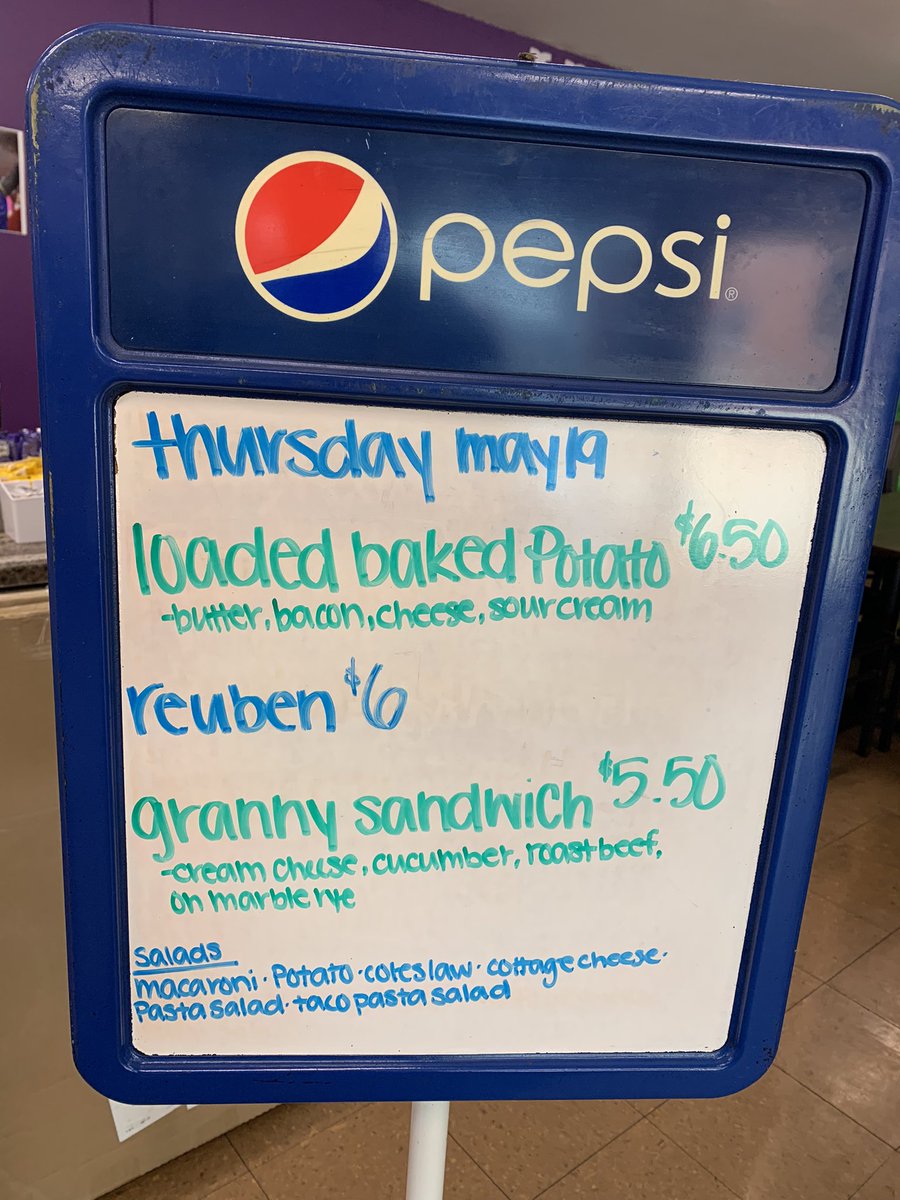 pepsi®
thursday may 19
loaded baked Potato $6.50
-butter, bacon, cheese, sour cream
reuben $6
granny sandwich $5.50
-cream cheese, cucumber, roast beef,
on marble rye
Salads
macaroni · Potato · coleslaw · cottage cheese ·
Pasta salad · taco pasta salad